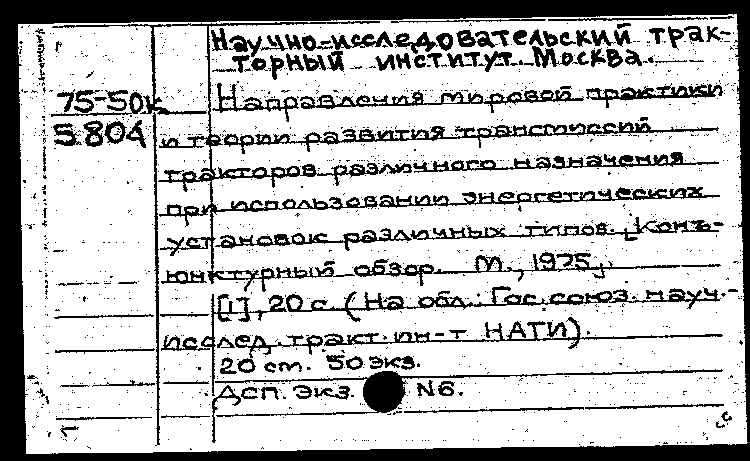 Научно-исследовательский трак-
торный институт. Москва.
75-50к Направления мировой практики
5804 и теории развития трансмиссий
тракторов различного назначения
при использовании энергетических
установок различных типов. [Конъ-
юнктурный обзор. М., 1975].
[1], 20 с. (На обл.: Гос. союз. науч.-
исслед. тракт. ин-т НАТИ).
20 cm. 50 экз.
Дсп. Экз. №6.